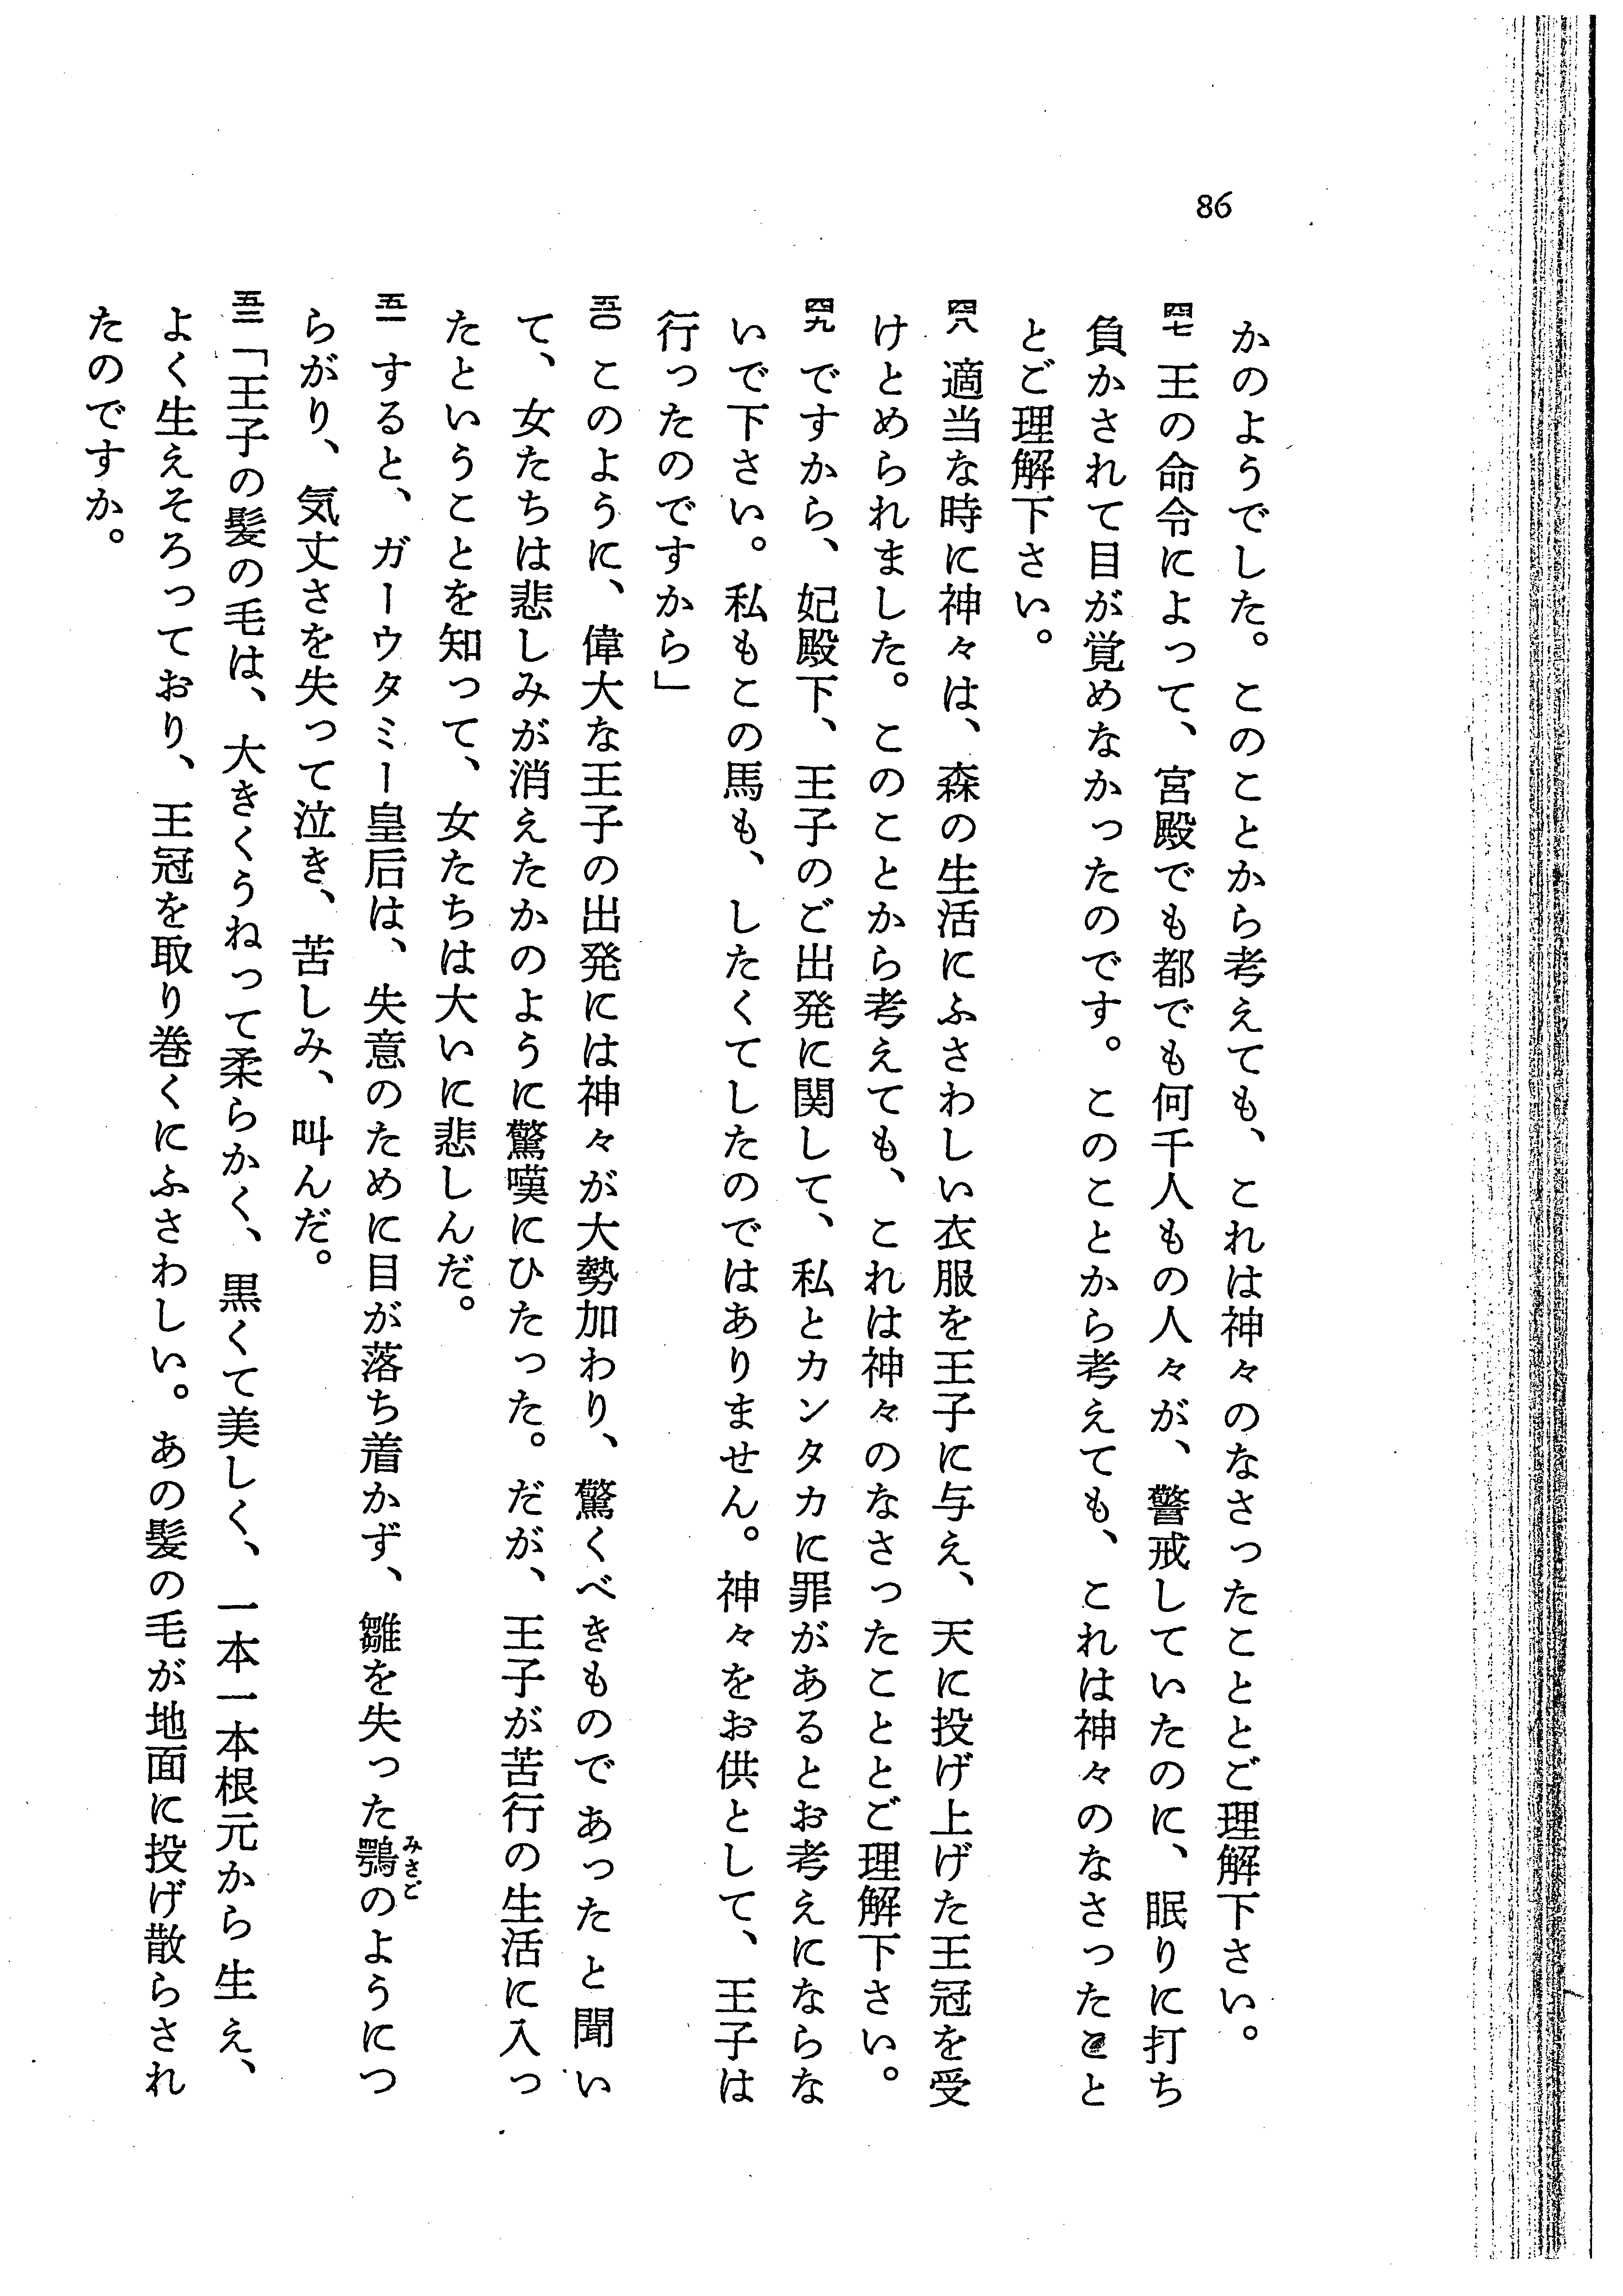 86
かのようでした。このことから考えても、これは神々のなさったこととご理解下さい。
四七 王の命令によって、宮殿でも都でも何千人もの人々が、警戒していたのに、眠りに打ち
負かされて目が覚めなかったのです。このことから考えても、これは神々のなさったこと
とご理解下さい。
四八 適当な時に神々は、森の生活にふさわしい衣服を王子に与え、天に投げ上げた王冠を受
けとめられました。このことから考えても、これは神々のなさったこととご理解下さい。
四九 ですから、妃殿下、王子のご出発に関して、私とカンタカに罪があるとお考えにならな
いで下さい。私もこの馬も、したくてしたのではありません。神々をお供として、王子は
行ったのですから」
五〇 このように、偉大な王子の出発には神々が大勢加わり、驚くべきものであったと聞い
て、女たちは悲しみが消えたかのように驚嘆にひたった。だが、王子が苦行の生活に入っ
たということを知って、女たちは大いに悲しんだ。
五一 すると、ガーウタミー皇后は、失意のために目が落ち着かず、雛を失った鶚のようにつ
みさご
らがり、気丈さを失って泣き、苦しみ、叫んだ。
五二 「王子の髪の毛は、大きくうねって柔らかく、黒くて美しく、一本一本根元から生え、
よく生えそろっており、王冠を取り巻くにふさわしい。あの髪の毛が地面に投げ散らされ
たのですか。